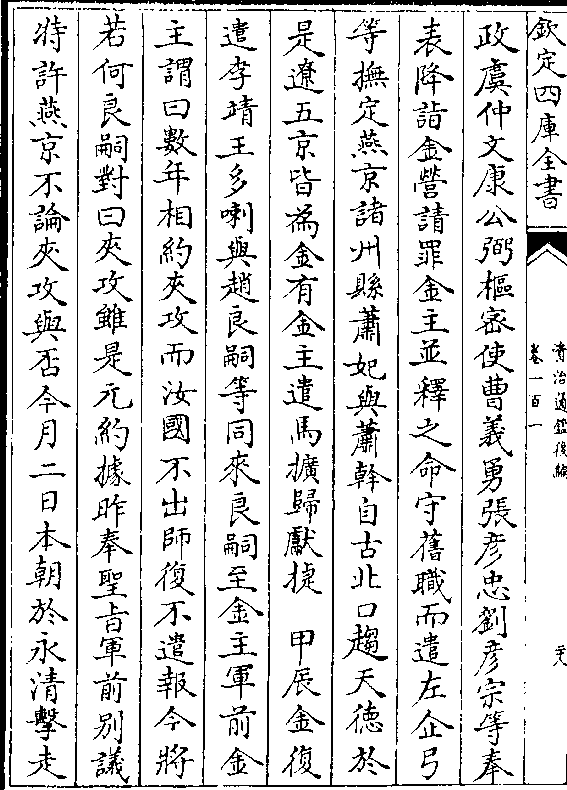 欽定四庫全書
資治通鑑後編
卷一百一
政虞仲文康公弼樞密使曹義勇張彦忠劉彦宗等奉
表降詣金營請罪金主並釋之命守舊職而遣左企弓
等撫定燕京諸州縣蕭妃與蕭幹自古北口趨天德於
是遼五京皆為金有金主遣馬擴歸獻捷　甲辰金復
遣李靖王多喇與趙良嗣等同來良嗣至金主軍前金
主謂曰數年相約夾攻而汝國不出師復不遣報今將
若何良嗣對曰夾攻雖是元約據昨奉聖旨軍前别議
特許燕京不論夾攻與否今月二日本朝於永清擊走